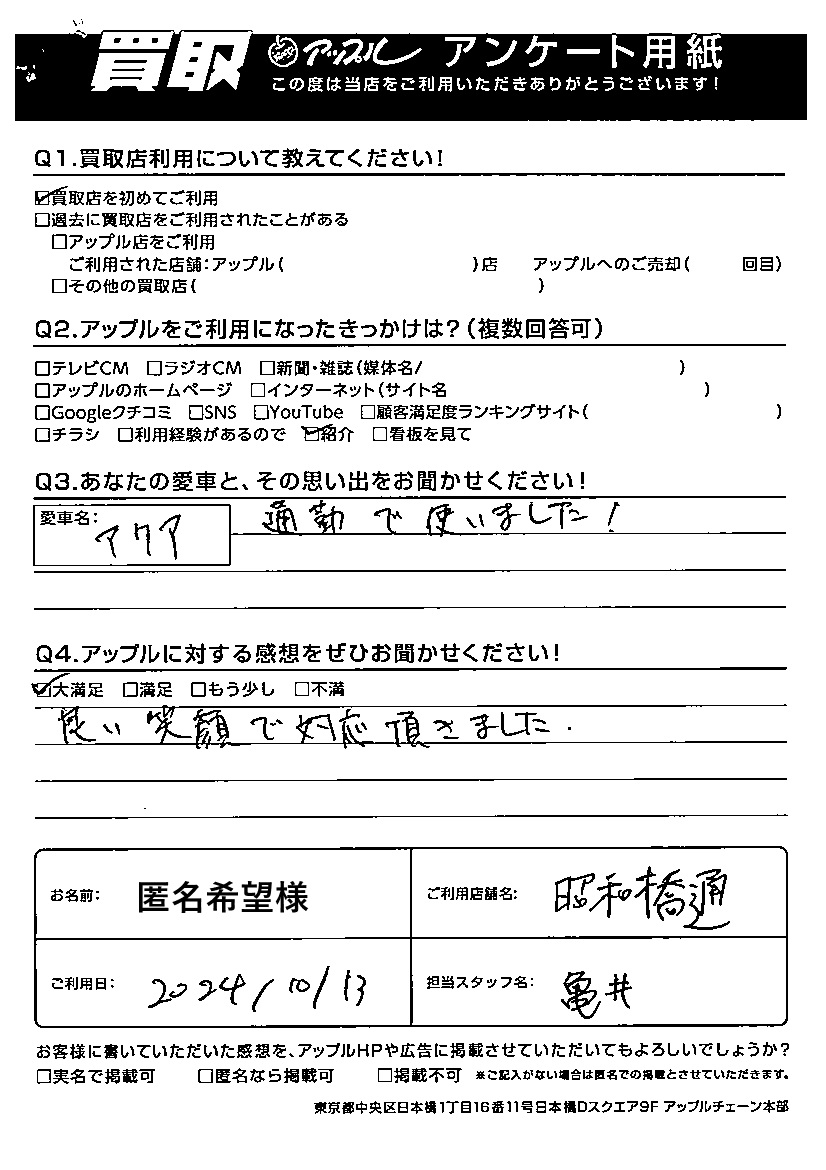 買取 アップル アンケート用紙
この度は当店をご利用いただきありがとうございます!
Q1.買取店利用について教えてください!
☑買取店を初めてご利用
□過去に買取店をご利用されたことがある
□アップル店をご利用
ご利用された店舗:アップル( )店 アップルへのご売却( 回目)
□その他の買取店( )
Q2.アップルをご利用になったきっかけは?(複数回答可)
□テレビCM □ラジオCM □新聞・雑誌(媒体名/ )
□アップルのホームページ □インターネット(サイト名 )
□Googleクチコミ □SNS □YouTube □顧客満足度ランキングサイト( )
□チラシ □利用経験があるので ☑紹介 □看板を見て
Q3.あなたの愛車と、その思い出をお聞かせください!
愛車名: アクア 通勤で使いました!
Q4.アップルに対する感想をぜひお聞かせください!
☑大満足 □満足 □もう少し □不満
良い笑顔で対応頂きました.
お名前: 匿名希望様 ご利用店舗名: 昭和橋通
ご利用日: 2024/10/13 担当スタッフ名: 亀井
お客様に書いていただいた感想を、アップルHPや広告に掲載させていただいてもよろしいでしょうか?
□実名で掲載可 □匿名なら掲載可 □掲載不可 ※ご記入がない場合は匿名での掲載とさせていただきます。
東京都中央区日本橋1丁目16番11号日本橋Dスクエア9F アップルチェーン本部